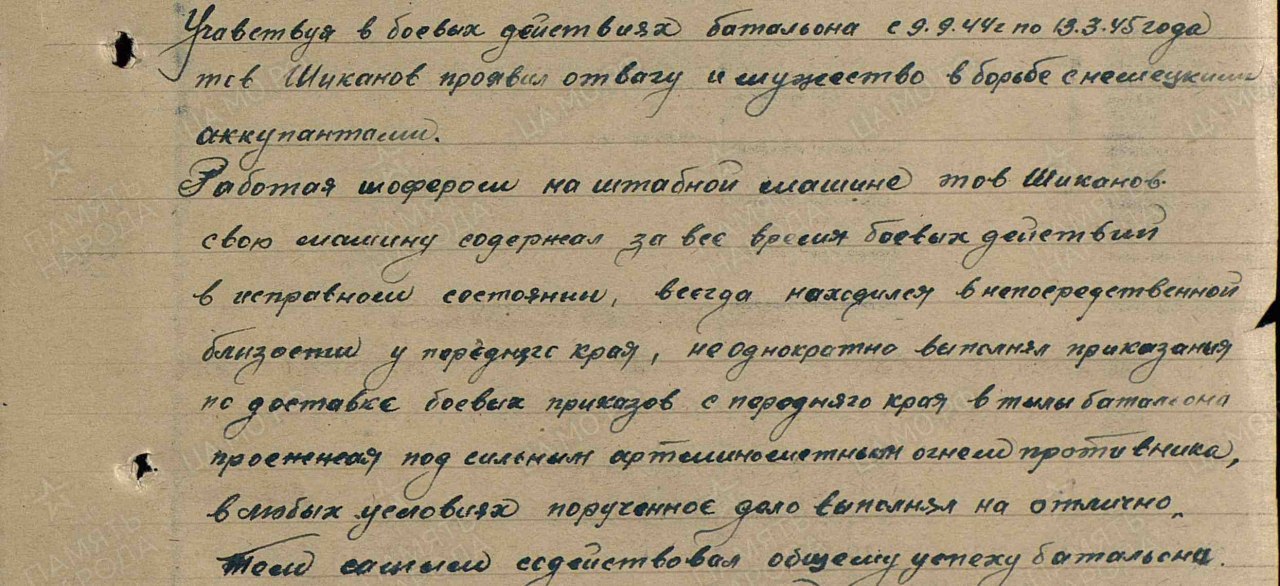 Учавствуя в боевых действиях батальона с 9.9.44г по 13.3.45 года
тов Шиканов проявил отвагу и мужество в борьбе с немецкими
аккупантами.
Работая шофером на штабной машине тов Шиканов
свою машину содержал за все время боевых действий
в исправном состоянии, всегда находился в непосредственной
близости у переднего края, неоднократно выполнял приказания
по доставке боевых приказов с переднего края в тылы батальона
проезжая под сильным артминометным огнем противника,
в любых условиях порученное дело выполнял на отлично.
Тем самым содействовал общему успеху батальона.
ПАМЯТЬ НАРОДА
ЦАМО РФ